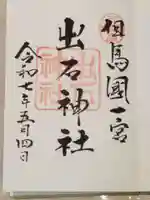 但馬國一宮
出石神社
令和七年五月四日